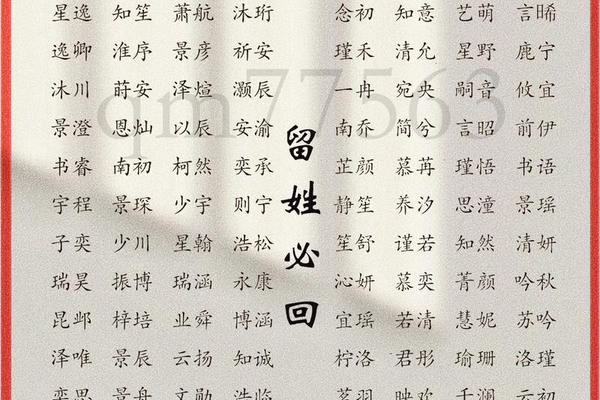 星逸 知笙 萧航 沐珩 念初 知意 艺萌 言晞
逸卿 淮序 景彦 祈安 瑾禾 清允 星野 鹿宁
沐川 莳安 泽煊 灏辰 一冉 宛央 嗣音 攸宜
景澄 恩灿 以辰 安渝 南乔 简兮 言昭 前伊
书睿 南初 柯然 奕承 芷颜 慕苒 瑾悟 书语
宇程 景琛 少宇 则宁 静笙 养汐 思潼 景瑶
子奕 少川 星翰 浩松 笙舒 谨若 知然 清妍
瑞昊 振博 瑞涵 永康 沁妍 慕奕 菁颜 吟秋
昆邺 梓培 业舜 博涵 宜瑶 若清 慧妮 苏吟
泽唯 景辰 云扬 知诚 柠洛 君彤 瑜珊 洛瑾
奕思 景舟 文勋 浩临 茗羽 映欢 千澜 云初
留姓必回
qm77563